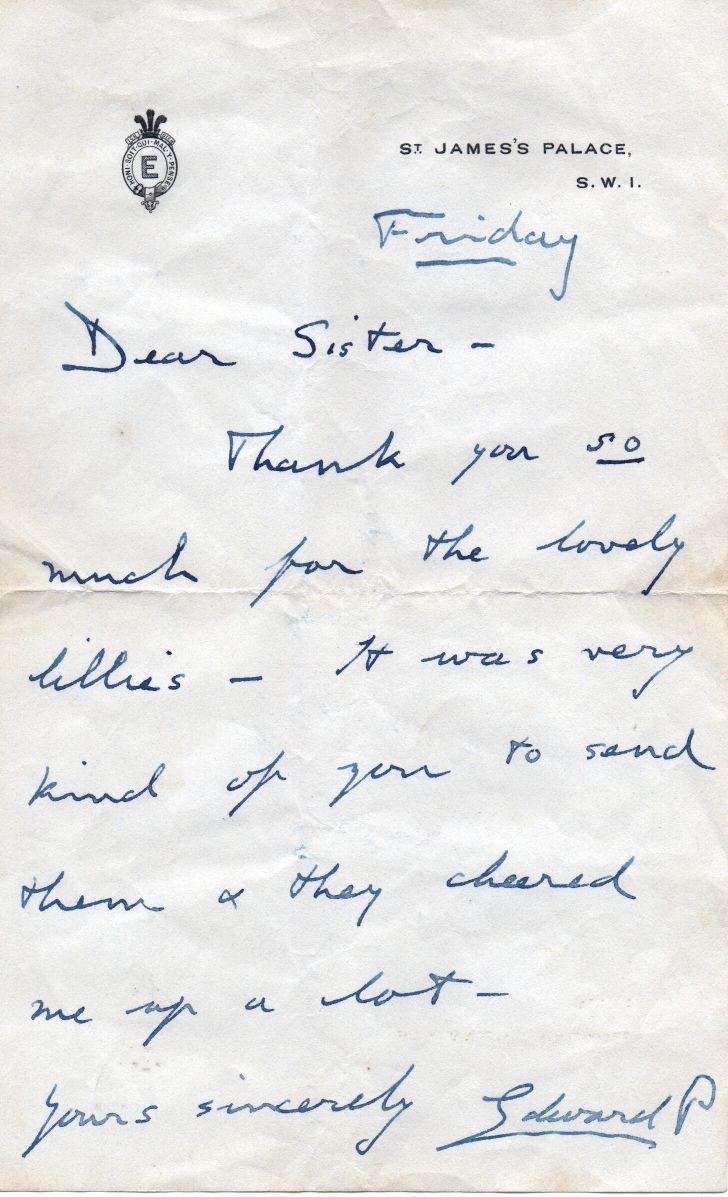 HONI·SOIT·QUI·MAL·Y·PENSE
E
ST. JAMES'S PALACE,
S.W.1.
Friday
Dear Sister –
Thank you so
much for the lovely
lillies – It was very
kind of you to send
them & they cheered
me up a lot –
Yours sincerely Edward P